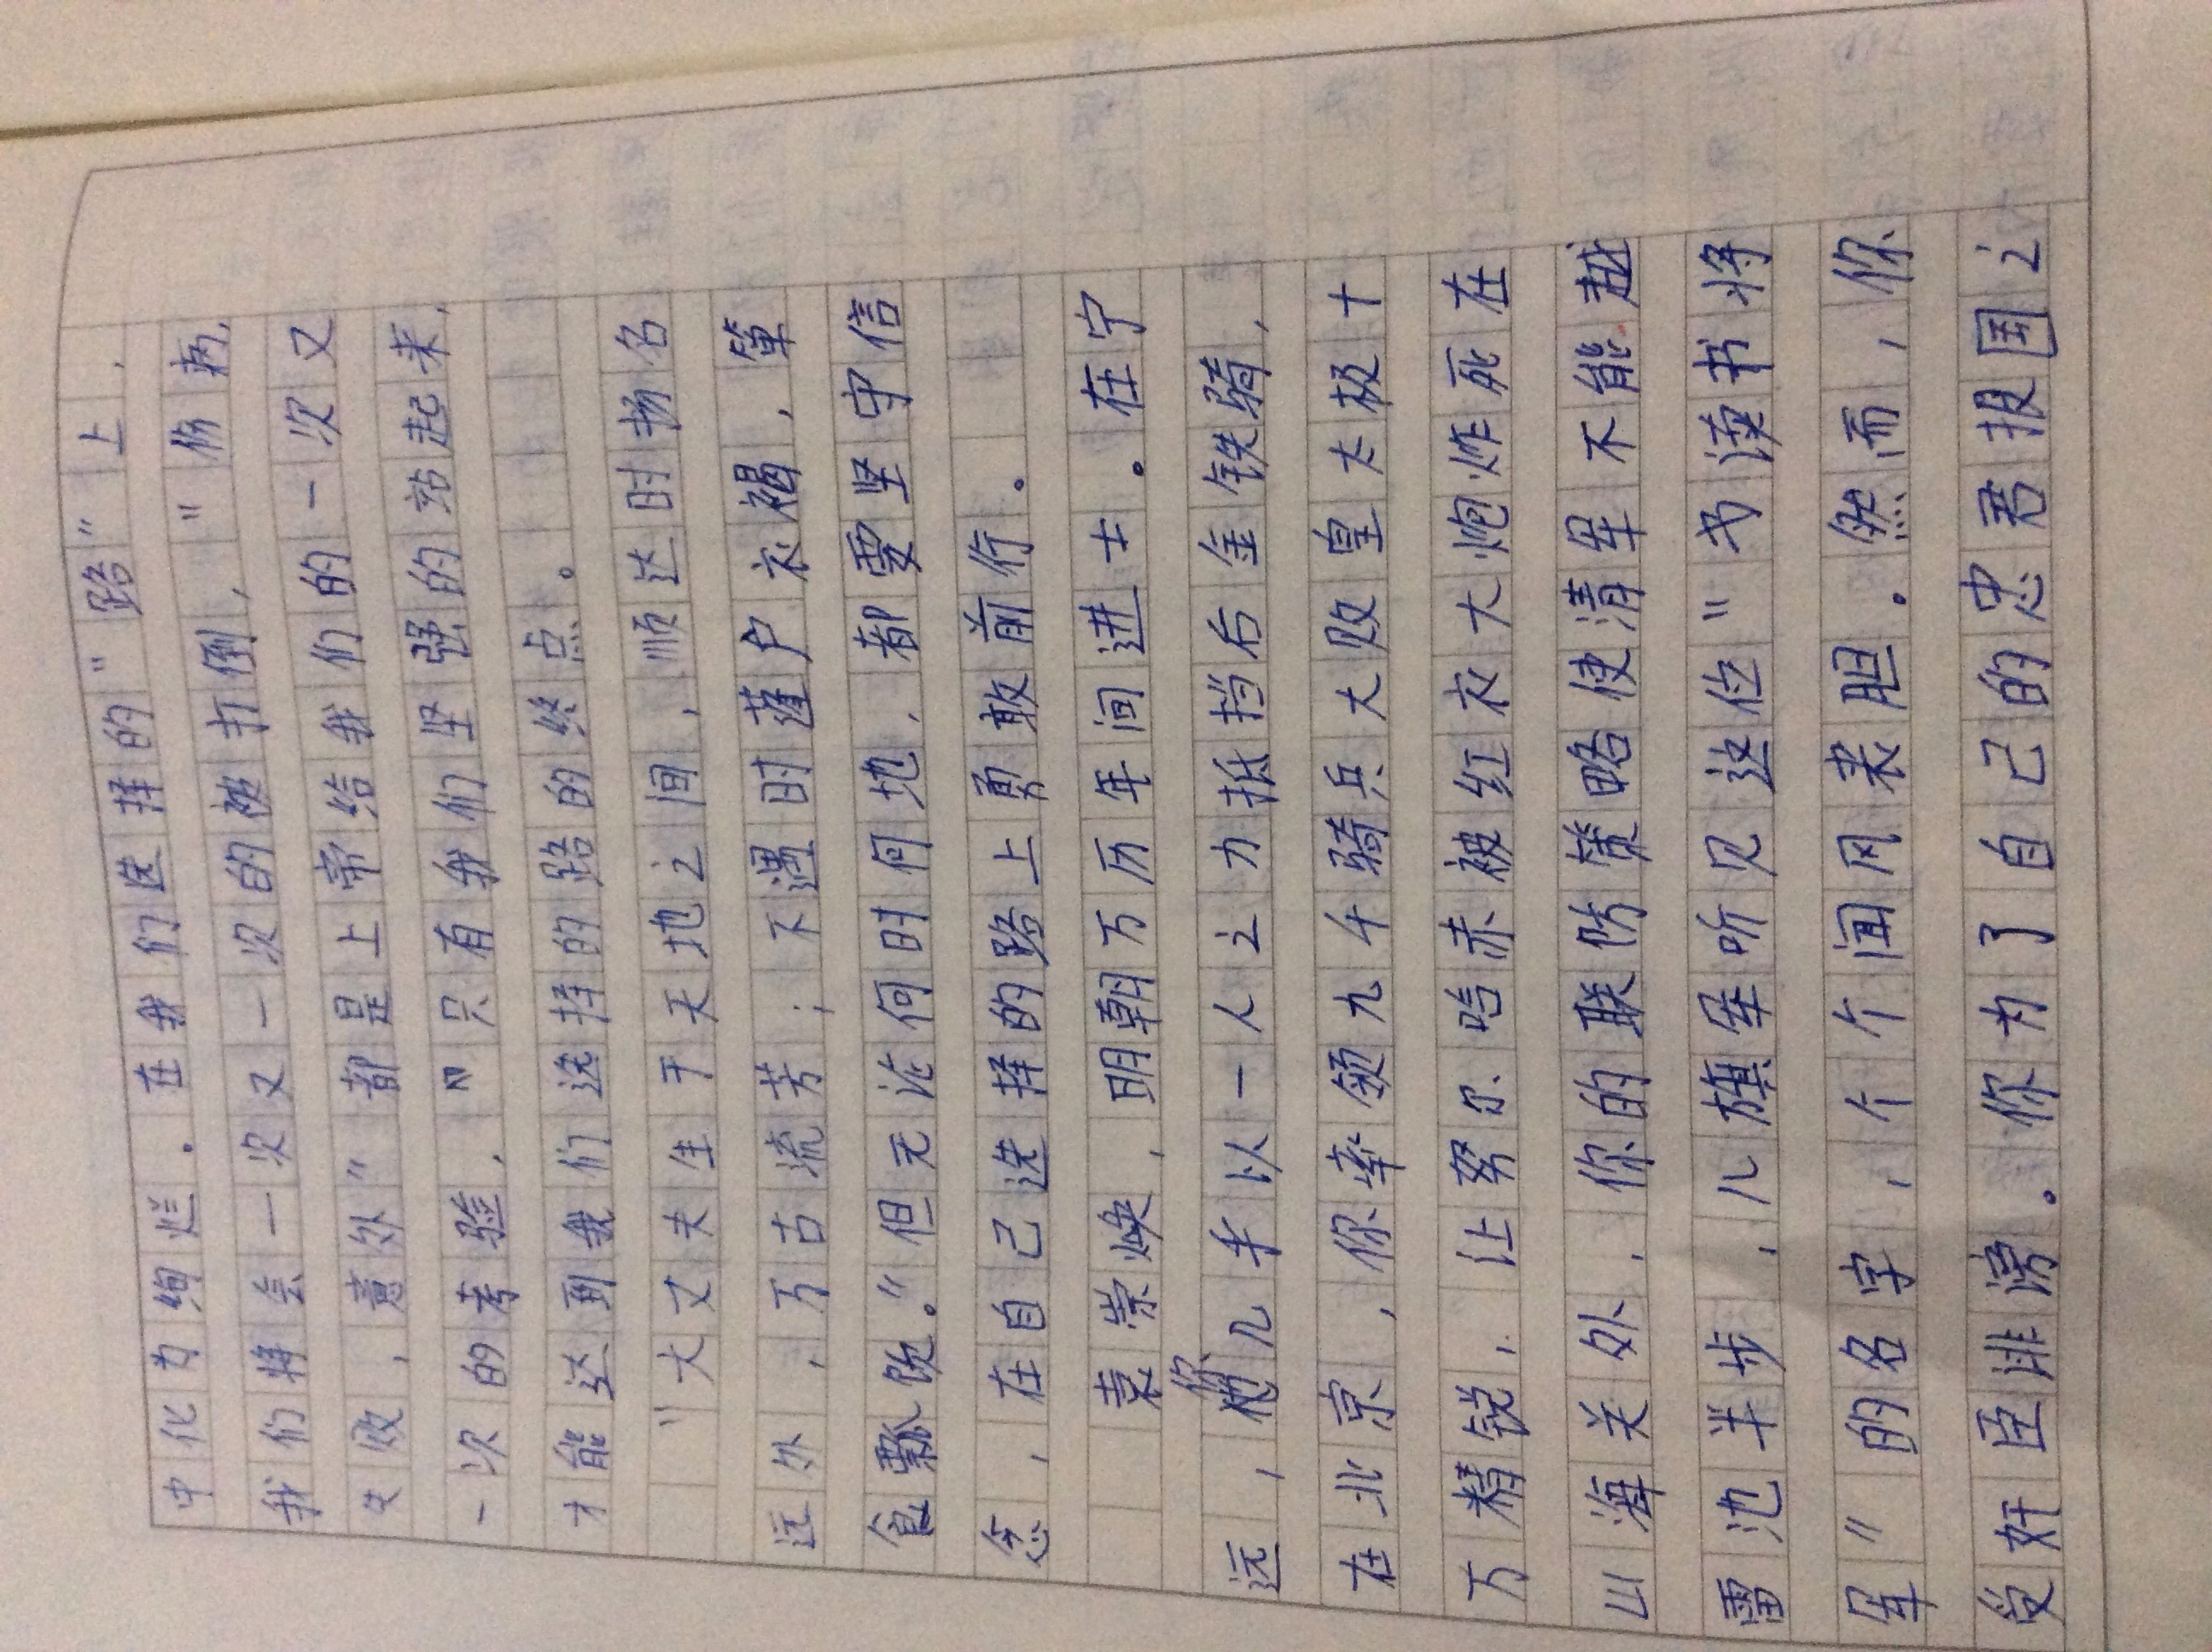 中化为绚烂.在我们选择的"路"上,
我们将会一次又一次的被打倒,"伤病,
失败,意外"都是上帝给我们的一次又
一次的考验,"只有我们坚强的站起来,
才能达到我们选择的路的终点。
"大丈夫生于天地之间,顺达时扬名
远外,万古流芳;不遇时蓬户衣褐,箪
食瓢饮。"但无论何时何地,都要坚守信
念,在自己选择的路上勇敢前行。
袁崇焕,明朝万历年间进士。在宁
远,你几乎以一人之力抵挡后金铁骑,
在北京,你率领九千骑兵大败皇太极十
万精锐,让努尔哈赤被红衣大炮炸死在
山海关外,你的联防策略使清军不能越
雷池半步,八旗军听见这位"书读书将
军"的名字,个个闻风丧胆.然而,你
受奸臣诽谤。你为了自己的忠君报国之